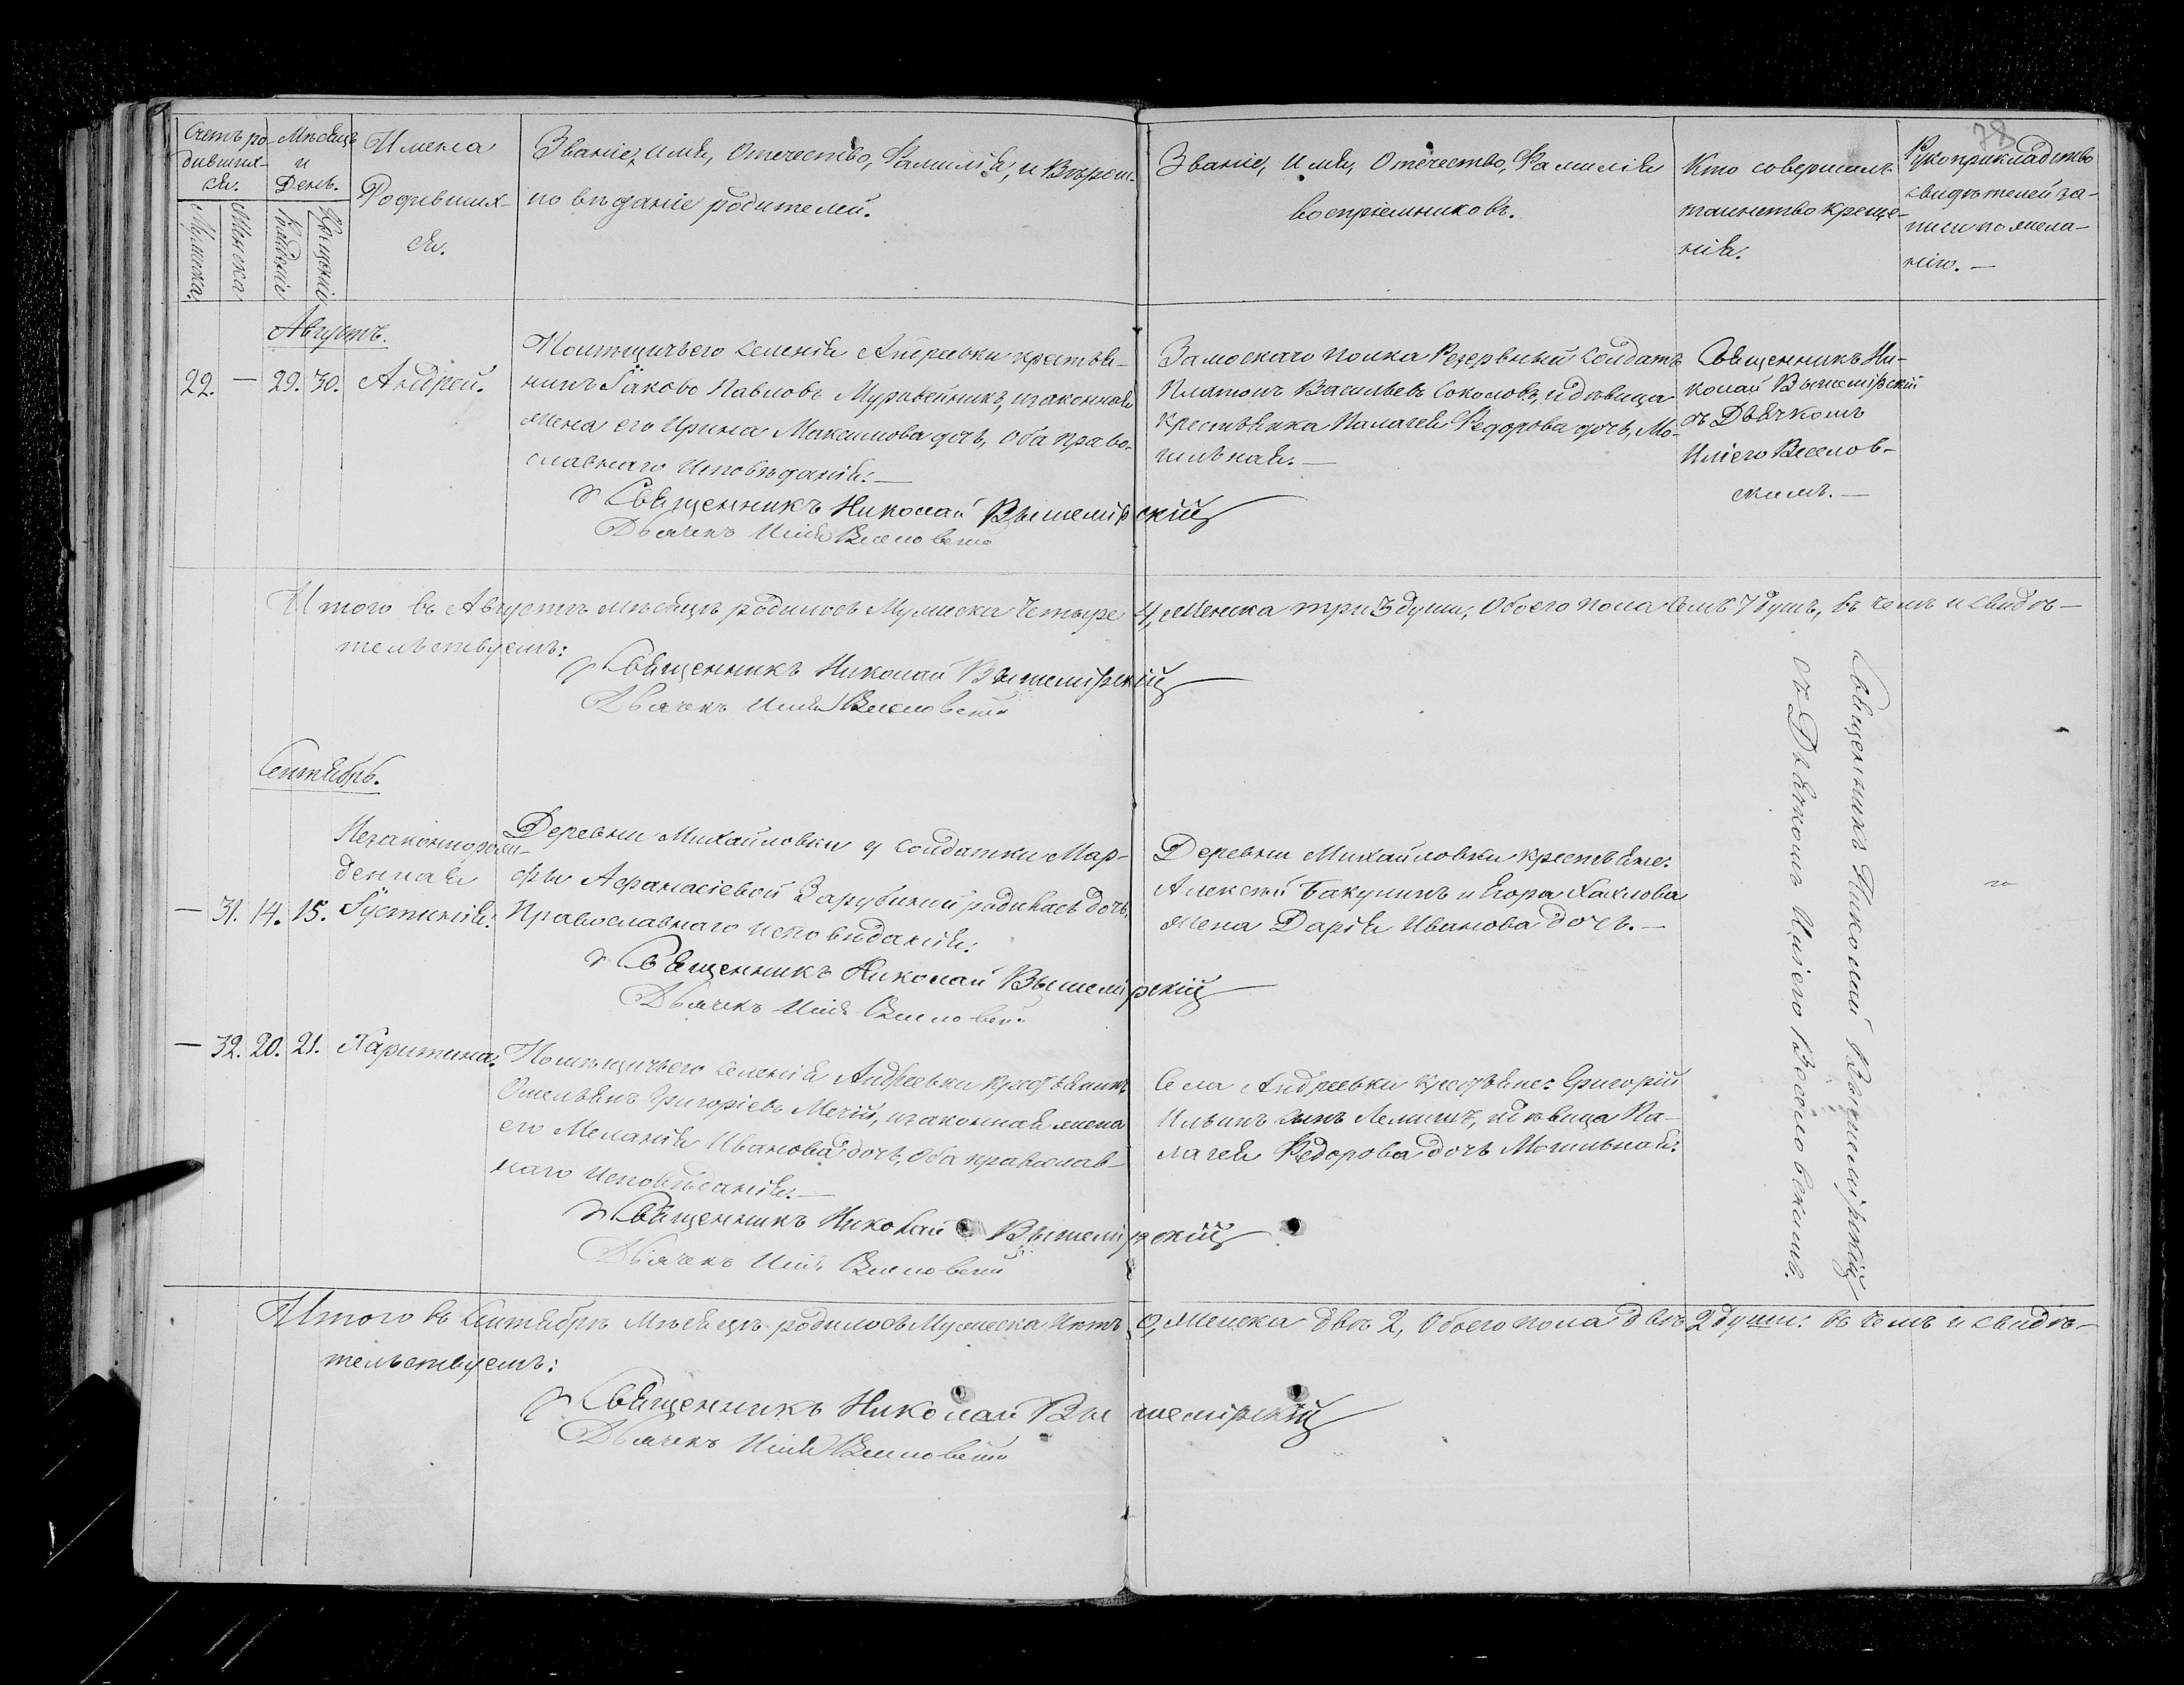 78
Счетъ ро-
дивших-
ся.
Мѣсяцъ
и
День.
Имена
Родивших-
ся.
Званіе, имя, Отечество, Фамилія, и Вѣрои-
повѣданіе родителей.
Званіе, имя, Отечество, Фамилія
воспріемниковъ.
Кто совершалъ
таинство креще-
нія.
Рукоприкладство
свидѣтелей за-
писи по жела-
нію. —
Мужеска.
Женска
Рожденіе
Крещеніе
Августъ.
22. — 29. 30. Андрей.
Помѣщичьего селенія Андреевки крестья-
нинъ Іаковъ Павловъ Муравейникъ, изаконная
жена его Ирина Максимова дочь, оба право-
славнаго исповѣданія. —
Священникъ Николай Вышемірскій
Дьячекъ Илія Веселовскій
Замоскаго полка Резервный солдатъ
Платонъ Васильевъ Соколовъ, идѣвица
крестьянка Палагея Федорова дочь, Мо-
гильная. —
Священникъ Ни-
колай Вышемірскій
съ Дьячкомъ
Иліею Веселов-
скимъ. —
Итого въ Августѣ мѣсяцѣ родилось Мужеска Четыре 4, Женска три 3 души, Обоего пола семь 7 душъ, въ чемъ и свидѣ-
тельствуемъ:
Священникъ Николай Вышемірскій
Дьячекъ Илія Веселовскій
Сентябрь.
Незаконнорож-
денная
— 31. 14. 15. Іустинія.
Деревни Михайловки у солдатки Мар-
фы Афанасіевой Зарубиной родилась дочь,
Православнаго исповиданія:
Священникъ Николай Вышемірскій
Дьячекъ Илія Веселовскій
Деревни Михайловки крестьяне:
Алексѣй Бакулинъ и Егора Хахлова
жена Дарія Иванова дочь. —
— 32. 20. 21. Харитина.
Помѣщичьего селенія Андреевки крестьянинъ
Омельянъ Григоріевъ Мечій, изаконная жена
его Меланія Иванова дочь, Оба православ-
наго исповѣданія. —
Священникъ Николай Вышемірскій
Дьячекъ Илія Веселовскій
Села Андреевки крестьяне: Григорій
Ильинъ сынъ Лемишъ, идѣвица Па-
лагея Федорова дочь Могильная:
Священникъ Николай Вышемірскій
съ Дьячкомъ Иліею Веселовскимъ.
Итого въ Сентябрѣ Мѣсяцѣ родилось Мужеска Нѣтъ 0, Женска двѣ 2, Обоего пола двѣ 2 души: въ чемъ и свидѣ-
тельствуемъ:
Священникъ Николай Вышемірскій
Дьячекъ Илія Веселовскій